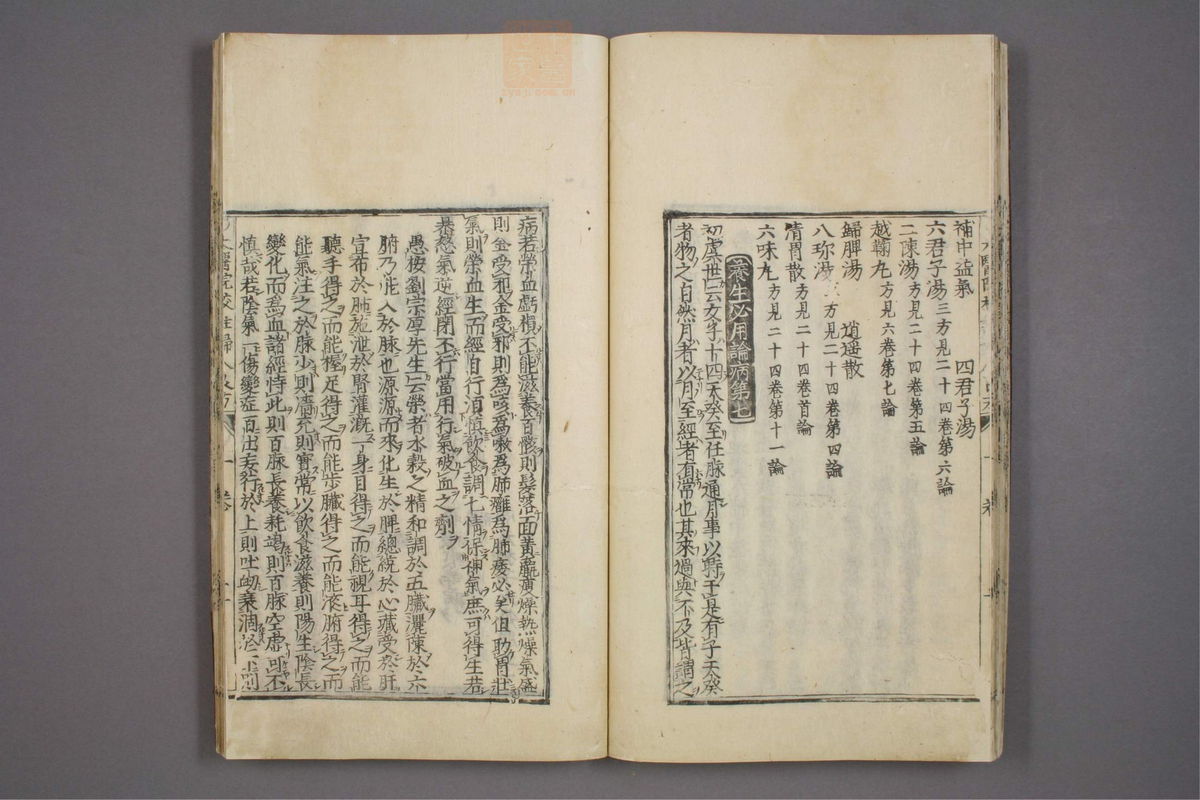 補中益氣　四君子湯
六君子湯三方見二十四卷第六論
二陳湯方見二十四卷第五論
越鞠丸方見六卷第七論
歸脾湯　逍遥散
八珍湯方見二十四卷第四論
清胃散方見二十四卷首論
六味丸方見二十四卷第十一論
養生必用論病第七
初虞世云女子十四天癸至任脉通月事以時下是有子天癸
者物之自然月者以月至經者有常也其來過與不及皆謂之
病若榮血虧損不能滋養百骸則髮落面黄羸瘦燥熱燥氣盛
則金受邪金受邪則爲咳爲嗽爲肺癰爲肺痿必矣但助胃壯
氣則榮血生而經自行須慎飲食調七情保神氣庶可得生若
暴怒氣逆經閉不行當用行氣破血之劑
愚按劉宗厚先生云榮者水穀之精和調於五臟灑陳於六
腑乃能入於脉也源源而來化生於脾總統於心藏受於肝
宣布於肺施泄於腎灌漑一身目得之而能視耳得之而能
聽手得之而能握足得之而能步臟得之而能液腑得之而
能氣注之於脉少則濇充則實常以飲食滋養則陽生陰長
變化而爲血諸經恃此則百脉長養耗竭則百脉空虚可不
慎哉若陰氣一傷變症百出妄行於上則吐衂衰涸於下則
太醫院校註婦人良方
一卷